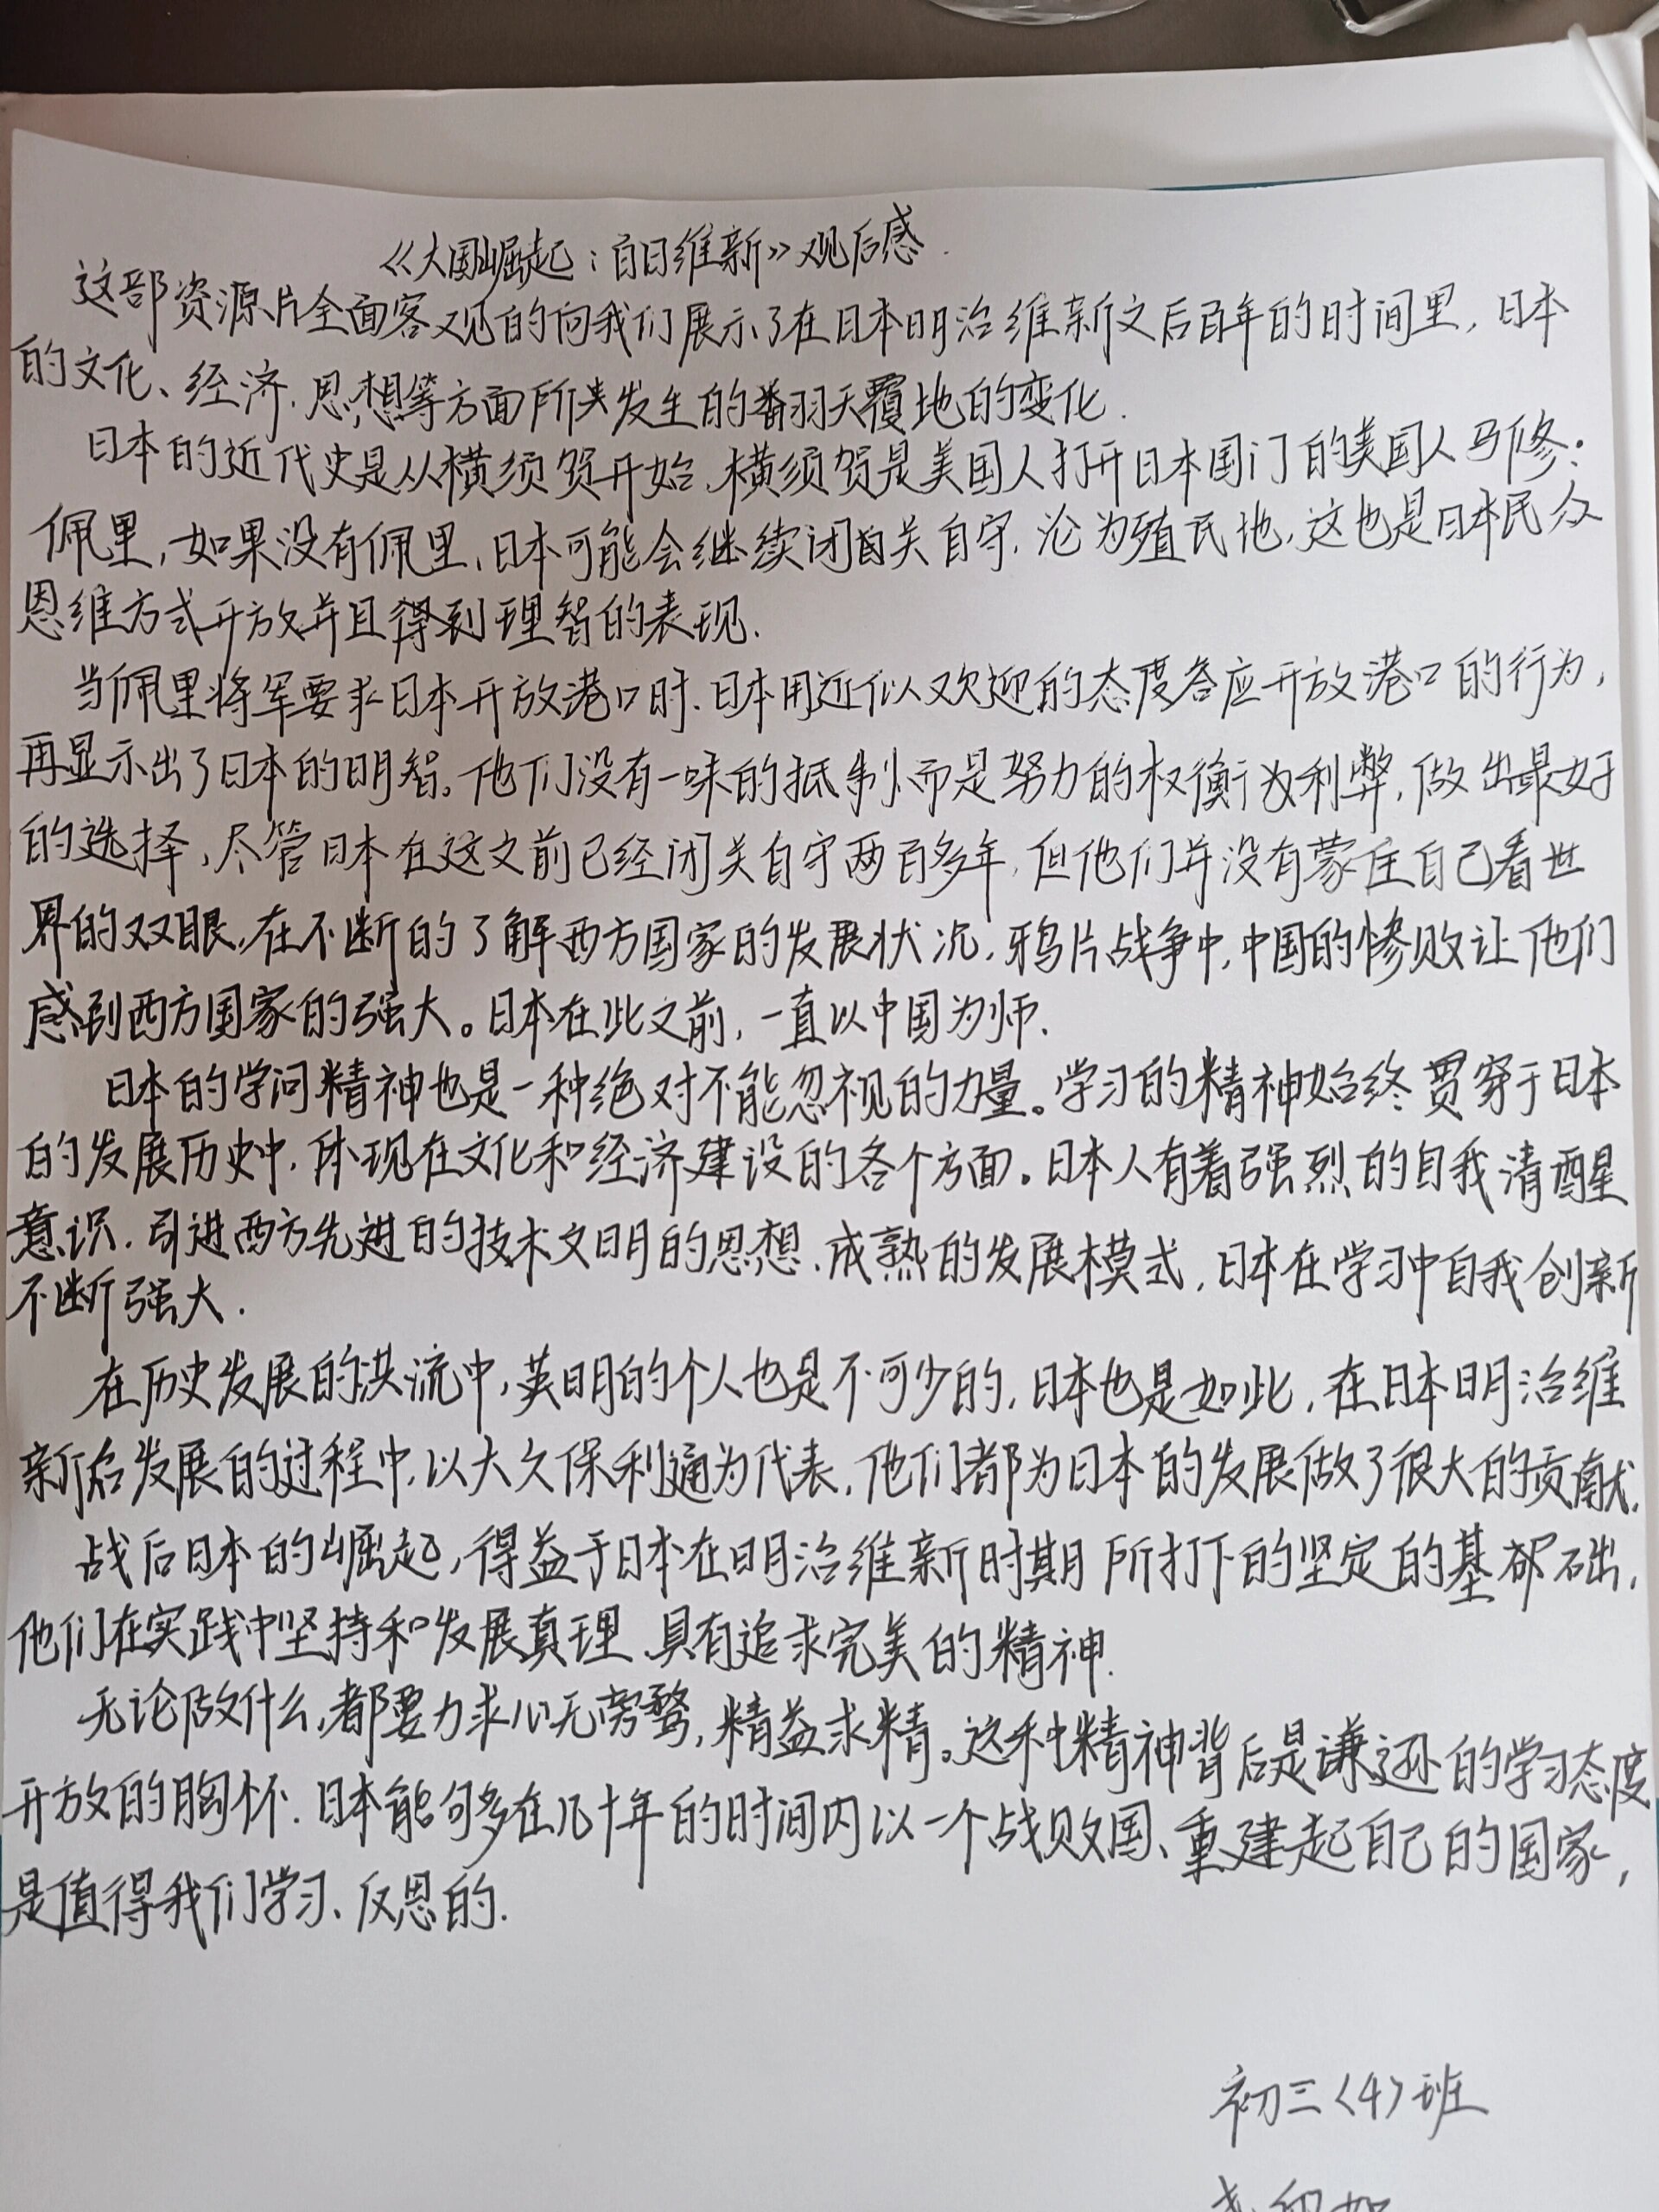 《大国崛起：百日维新》观后感.
这部资源片全面客观的向我们展示了在日本明治维新之后百年的时间里，日本
的文化、经济、思想等方面所发生的翻天覆地的变化.
日本的近代史是从横须贺开始、横须贺是美国人打开日本国门的美国人马修·
佩里，如果没有佩里、日本可能会继续闭关自守、沦为殖民地，这也是日本民众
思维方式开放并且得到理智的表现.
当佩里将军要求日本开放港口时、日本用近似以欢迎的态度答应开放港口的行为，
再显示出了日本的明智。他们没有一味的抵制而是努力的权衡利弊，做出最好
的选择，尽管日本在这之前已经闭关自守两百多年，但他们并没有蒙住自己看世
界的双眼，在不断的了解西方国家的发展状况，鸦片战争中，中国的惨败让他们
感到西方国家的强大。日本在此之前，一直以中国为师.
日本的学问精神也是一种绝对不能忽视的力量。学习的精神始终贯穿于日本
的发展历史中，体现在文化和经济建设的各个方面。日本人有着强烈的自我清醒
意识、引进西方先进的技术文明的思想、成熟的发展模式，日本在学习中自我创新
不断强大.
在历史发展的洪流中，英明的个人也是不可少的，日本也是如此，在日本明治维
新后发展的过程中，以大久保利通为代表，他们都为日本的发展做了很大的贡献.
战后日本的崛起，得益于日本在明治维新时期所打下的坚定的基础，
他们在实践中坚持和发展真理、具有追求完美的精神.
无论做什么，都要力求心无旁骛，精益求精。这种精神背后是谦逊的学习态度
开放的胸怀.日本能够在几十年的时间内以一个战败国、重建起自己的国家，
是值得我们学习、反思的.
初三〈4〉班